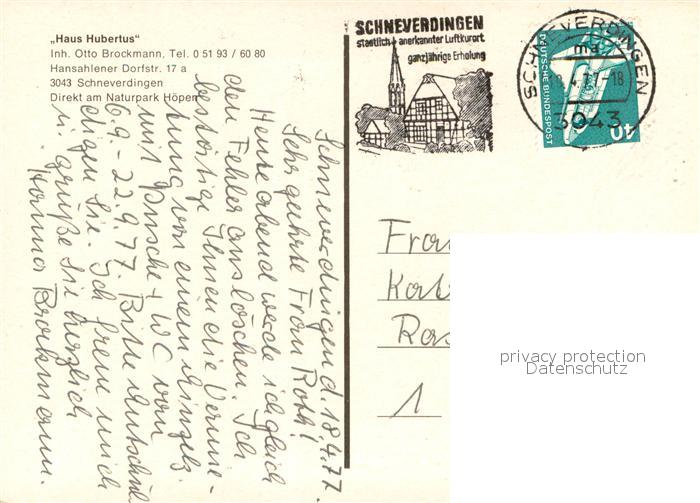 „Haus Hubertus"
Inh. Otto Brockmann, Tel. 0 51 93 / 60 80
Hansahlener Dorfstr. 17 a
3043 Schneverdingen
Direkt am Naturpark Höpen
SCHNEVERDINGEN
staatlich anerkannter Luftkurort
ganzjährige Erholung
SCHNEVERDINGEN
ma
4.77-18
3043
DEUTSCHE BUNDESPOST
40
Schneverdingen d. 18.4.77.
Sehr geehrte Frau Roth!
Heute abend werde ich gleich
den Fehler auslöschen. Ich
bestätige Ihnen die Vermie-
tung von einem Einzelz.
mit Dusche + WC vom
6.9. - 22.9.77. Bitte entschul
digen Sie. Ich freue mich
u. grüße Sie herzlich
Hanna Brockmann.
Frau
Ros
1
privacy protection
Datenschutz